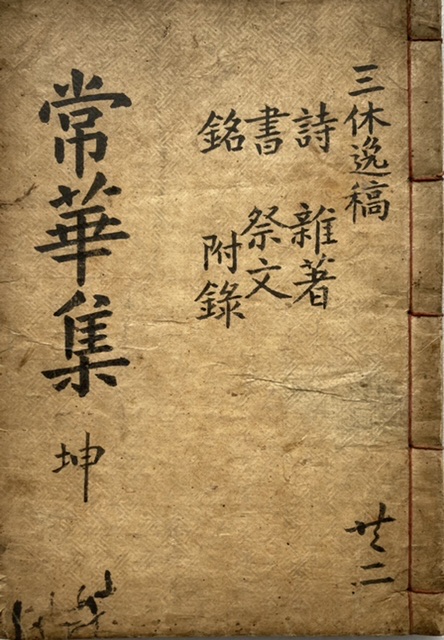 三休逸稿
共二
詩 雜著
書 祭文
銘 附錄
常華集 坤